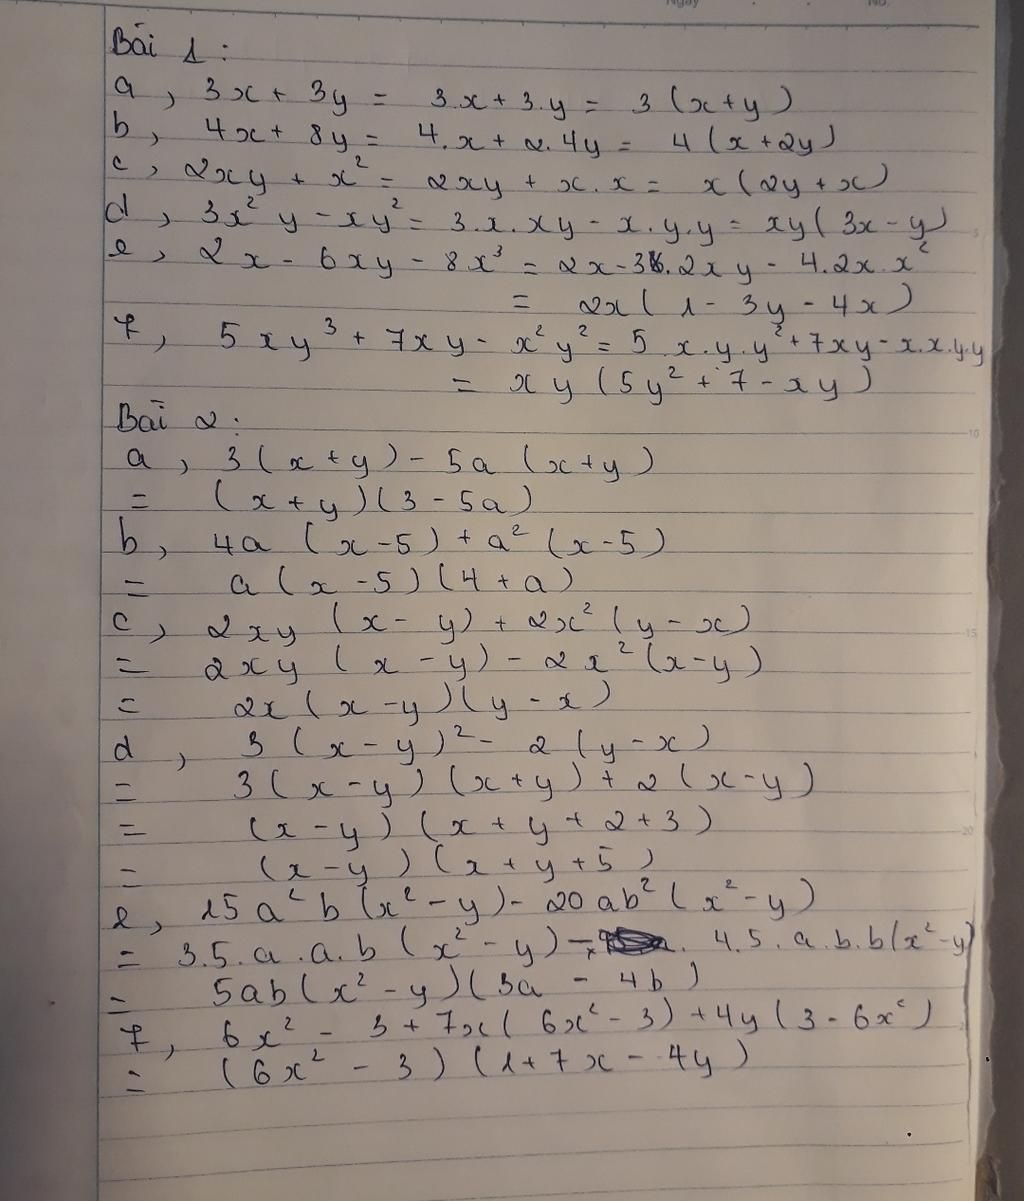 Ngày No.
Bài 1:
a, 3x + 3y = 3.x + 3.y = 3(x+y)
b, 4x + 8y = 4.x + 2.4y = 4(x+2y)
c, 2xy + x² = 2xy + x.x = x(2y+x)
d, 3x²y - xy² = 3.x.xy - x.y.y = xy(3x-y)
e, 2x - 6xy - 8x³ = 2x - 3.2xy - 4.2x.x²
= 2x(1 - 3y - 4x)
f, 5xy³ + 7xy - x²y² = 5.x.y.y² + 7xy - x.x.y.y
= xy(5y² + 7 - xy)
Bài 2:
a, 3(x+y) - 5a(x+y)
= (x+y)(3-5a)
b, 4a(x-5) + a²(x-5)
= a(x-5)(4+a)
c, 2xy(x-y) + 2x²(y-x)
= 2xy(x-y) - 2x²(x-y)
= 2x(x-y)(y-x)
d, 3(x-y)² - 2(y-x)
= 3(x-y)(x+y) + 2(x-y)
= (x-y)(x+y+2+3)
= (x-y)(x+y+5)
e, 15a²b(x²-y) - 20ab²(x²-y)
= 3.5.a.a.b(x²-y) - 4.5.a.b.b(x²-y)
= 5ab(x²-y)(3a-4b)
f, 6x² - 3 + 7x(6x²-3) + 4y(3-6x²)
= (6x²-3)(1+7x-4y)